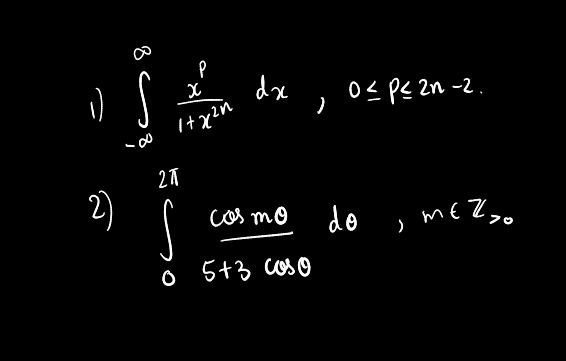 1) ∫_{-∞}^{∞} \frac{x^p}{1+x^{2n}} dx , 0 ≤ p ≤ 2n-2.
2) ∫_{0}^{2π} \frac{cos mθ}{5+3 cosθ} dθ , m ∈ ℤ_{>0}